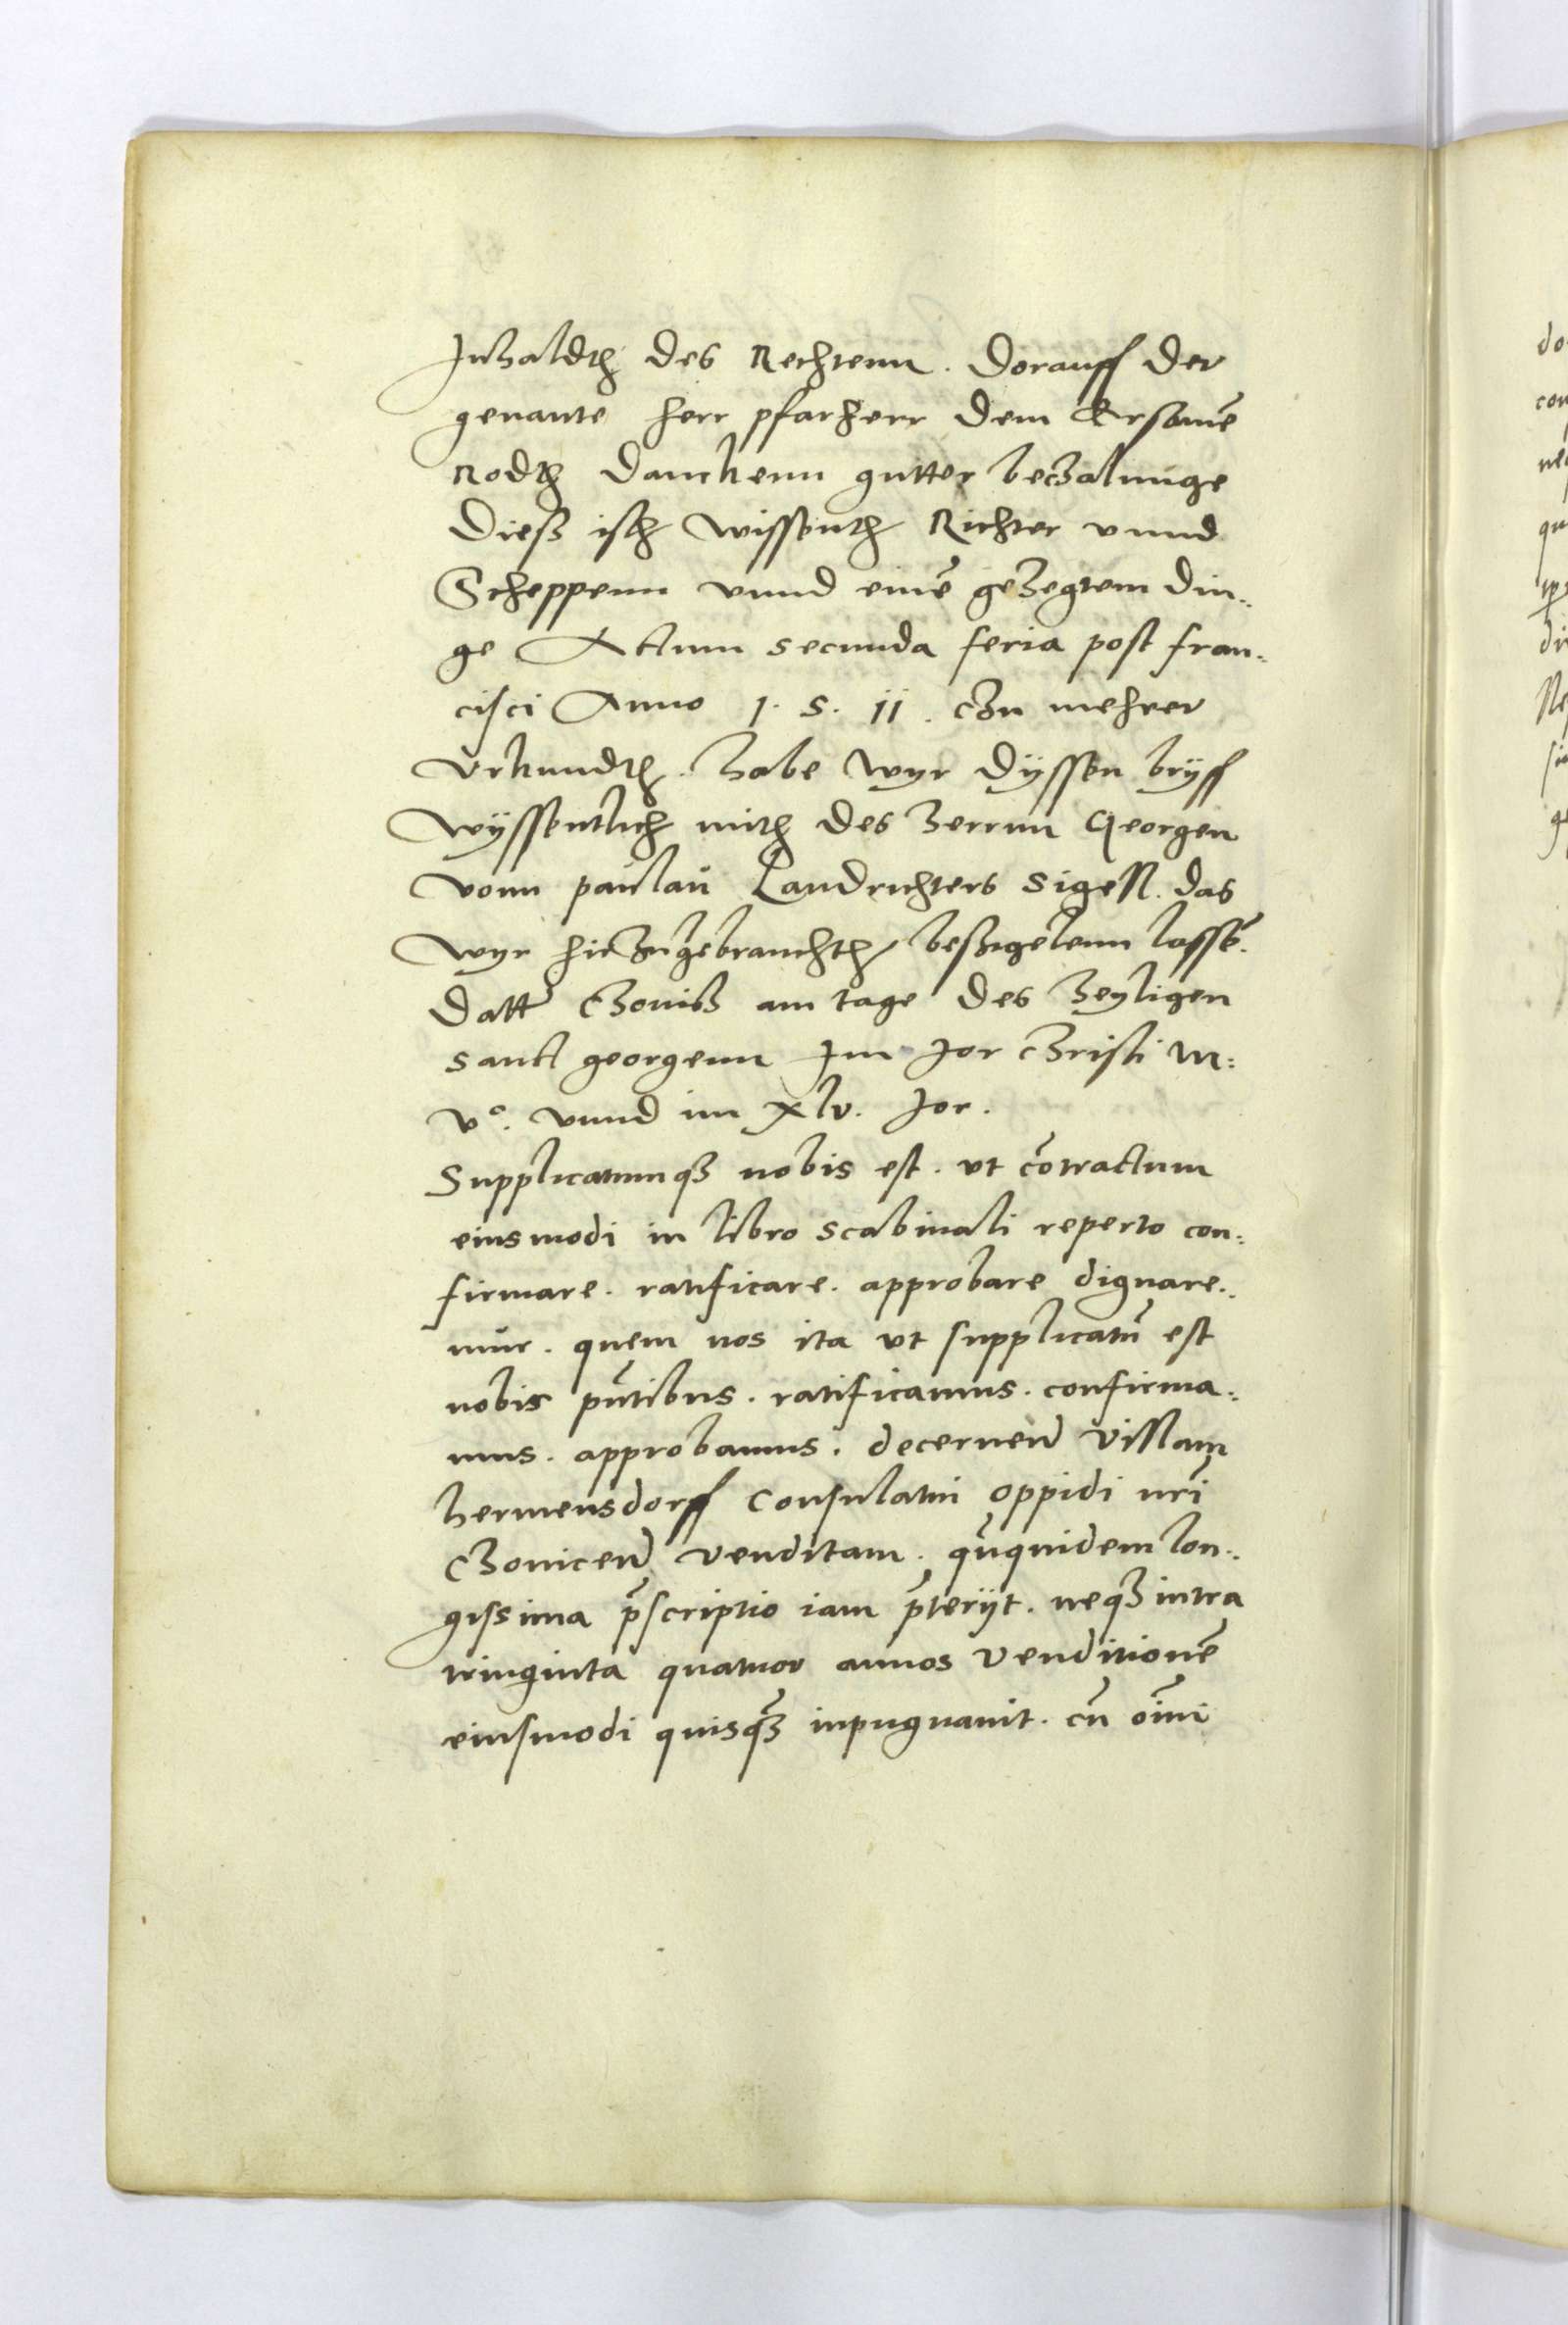 Inhaldth des Rechtenn. Dorauff der
genante herr pfarherr dem Ersamē
Rodth danckenn gutter beczalunge
Dieß isth wissenth Richter vnnd
Scheppenn vnnd einē gehegtem din:
ge Actum secunda feria post fran:
cisci Anno 1. 5. 11. czu mehrer
Vrkundth. habe wyr dÿssen bryff
wÿssentlich mith des herrnn Georgen
vonn paulaŭ Landrichters sigell. das
wyr hirzugebrauchth beßigelenn lassē.
Datt Choniß am tage des heyligen
sanct georgenn Im Jor christi M:
vº. vnnd im xlv. Jor.
Supplicatumqȝ nobis est. vt cōtractum
eiusmodi in libro scabinali reperto con:
firmare. ratificare. approbare dignare:
mur. quem nos ita vt supplicatū est
nobis pn̄tibus. ratificamus. confirma:
mus. approbamus. decernen̄ villam
hermensdorff consulatui oppidi nr̄i
Chonicen̄ venditam. qn̄quidem lon:
gissima p̄scriptio iam p̄terÿt. neqȝ intra
tringinta quatuor annos venditionē
eiusmodi quisqȝ inpugnauit. cū oīm̄